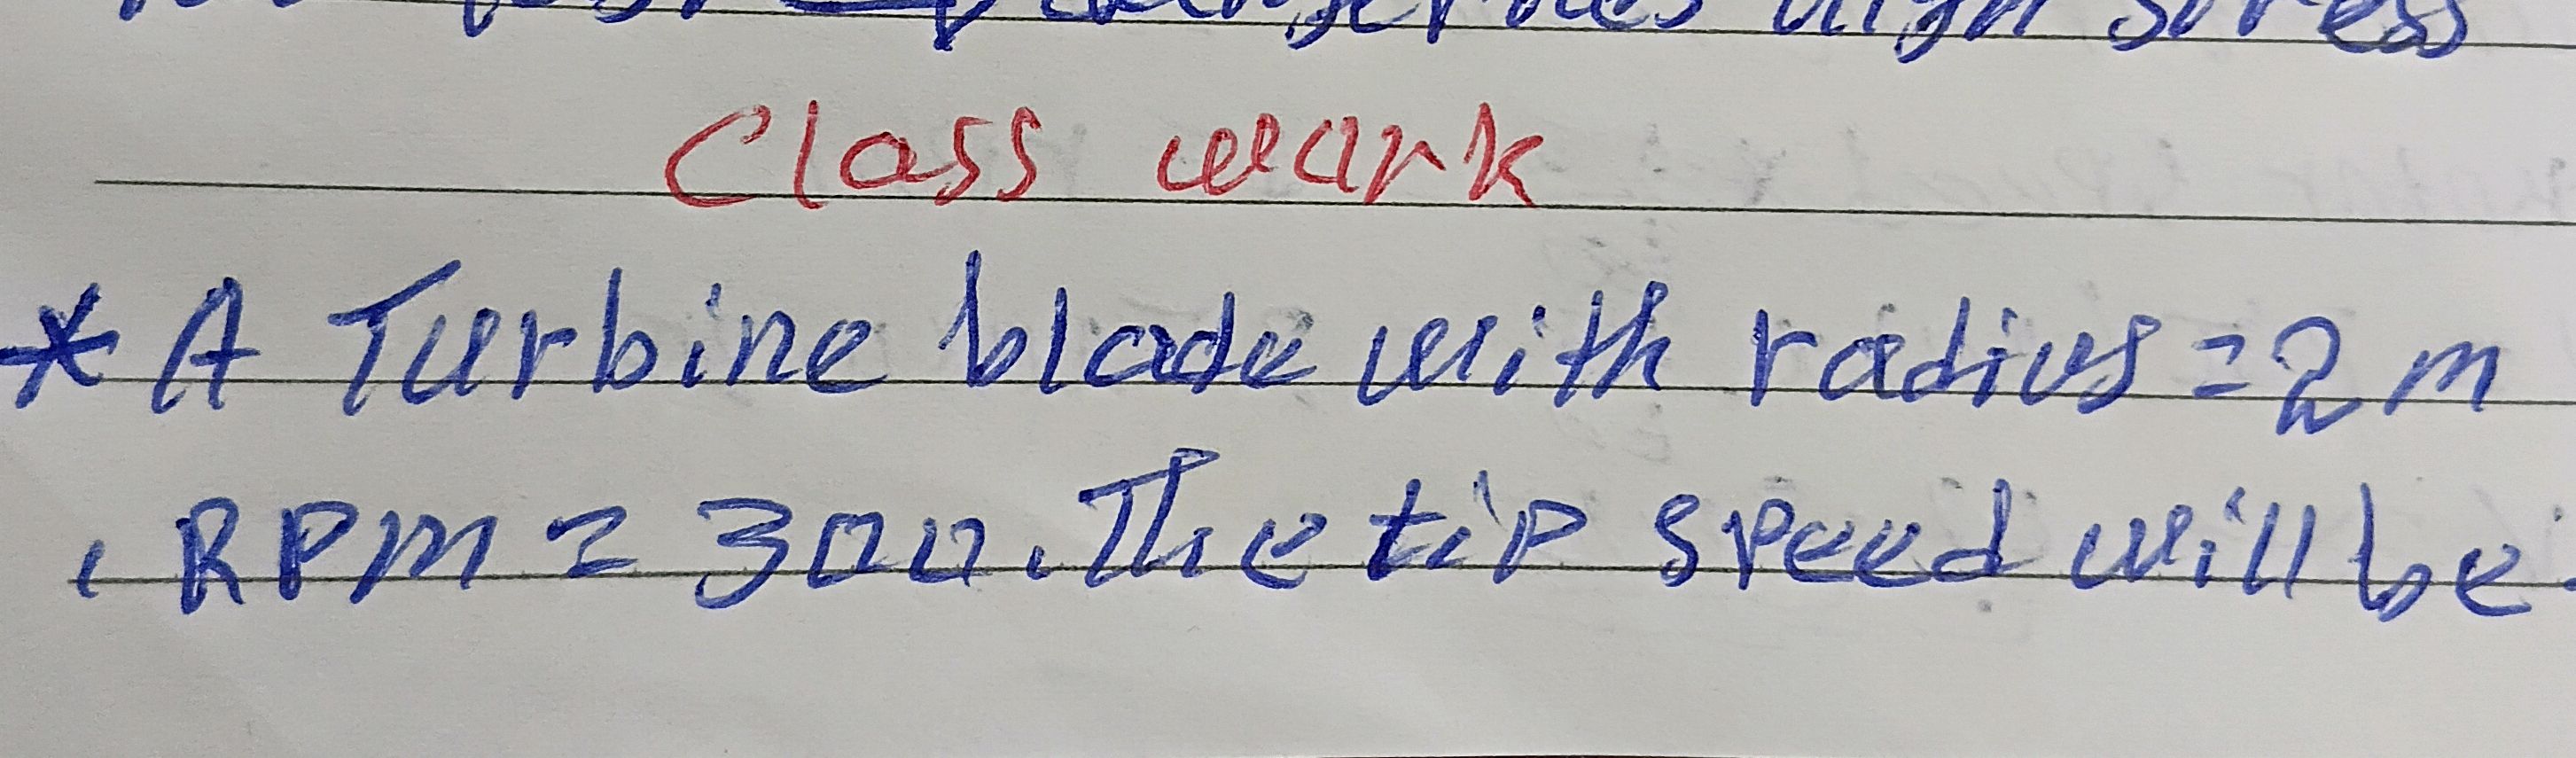 high stress
Class work
* A Turbine blade with radius = 2 m
, RPM = 300. The tip speed will be